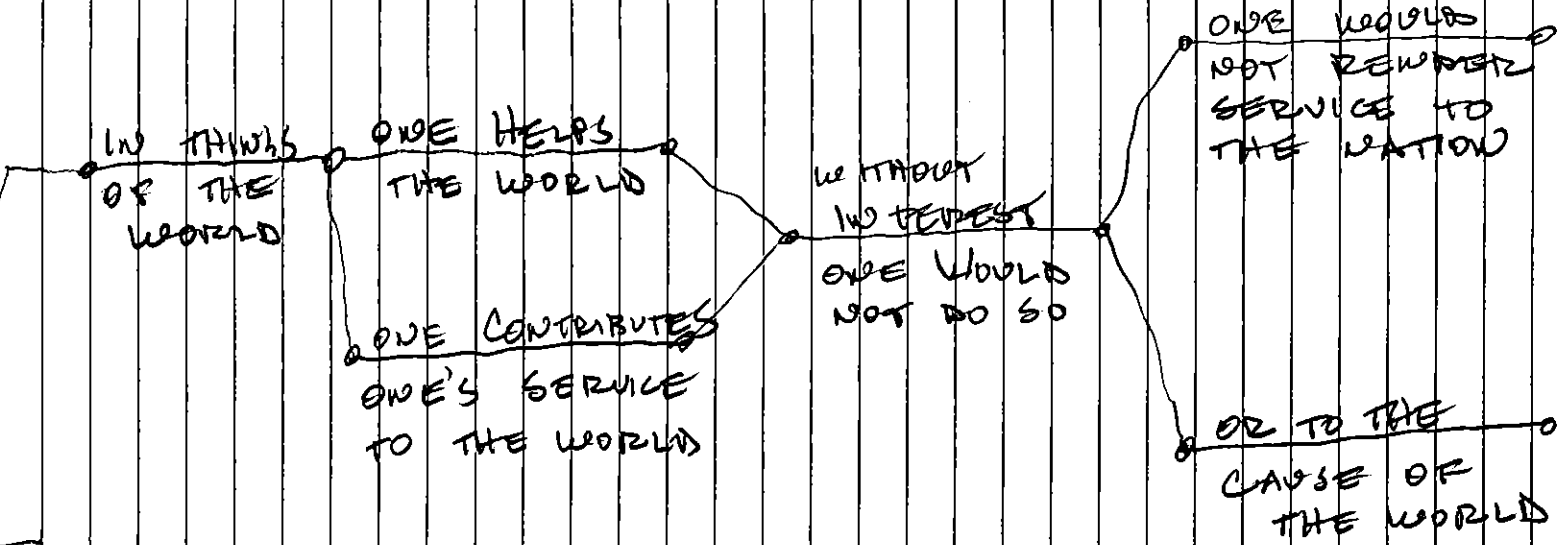 IN THINGS
OF THE
WORLD
ONE HELPS
THE WORLD
ONE CONTRIBUTES
ONE'S SERVICE
TO THE WORLD
WITHOUT
INTEREST
ONE WOULD
NOT DO SO
ONE WOULD
NOT RENDER
SERVICE TO
THE NATION
OR TO THE
CAUSE OF
THE WORLD